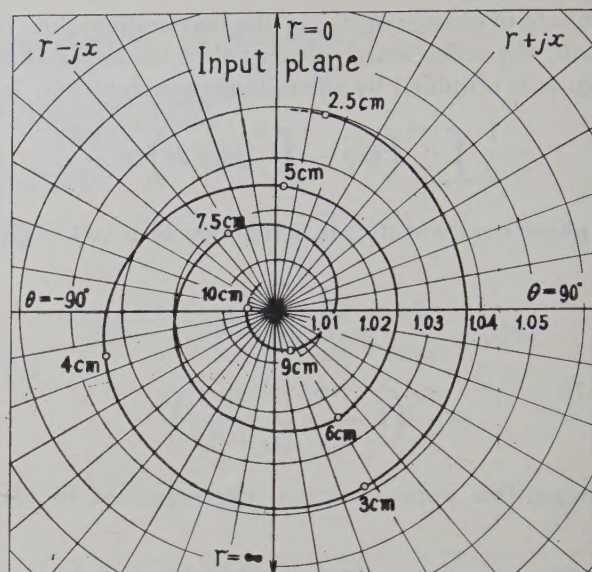 r=0
r-jx
r+jx
Input plane
2.5cm
5cm
7.5cm
10cm
θ=-90°
θ=90°
1.01 1.02 1.03 1.04 1.05
4cm
9cm
6cm
3cm
r=∞